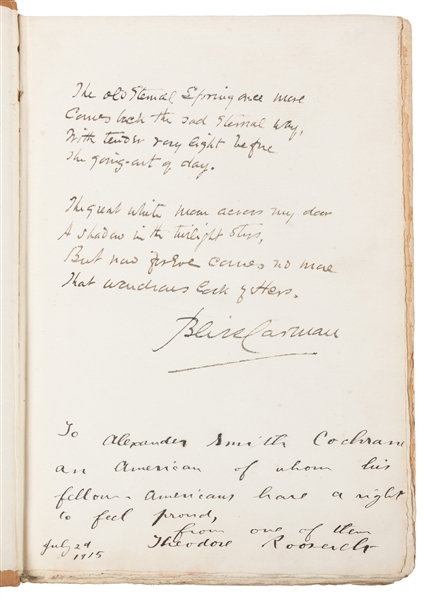 The old eternal Spring once more
Comes back the sad eternal way,
With tender rosy light before
The going-out of day.
The great white moon across my door
A shadow in the twilight stirs,
But now forever comes no more
That wondrous look of Hers.
Bliss Carman
To Alexander Smith Cochrane
an American of whom his
fellow-Americans have a right
to feel proud,
from one of them
Theodore Roosevelt
July 2d
1915